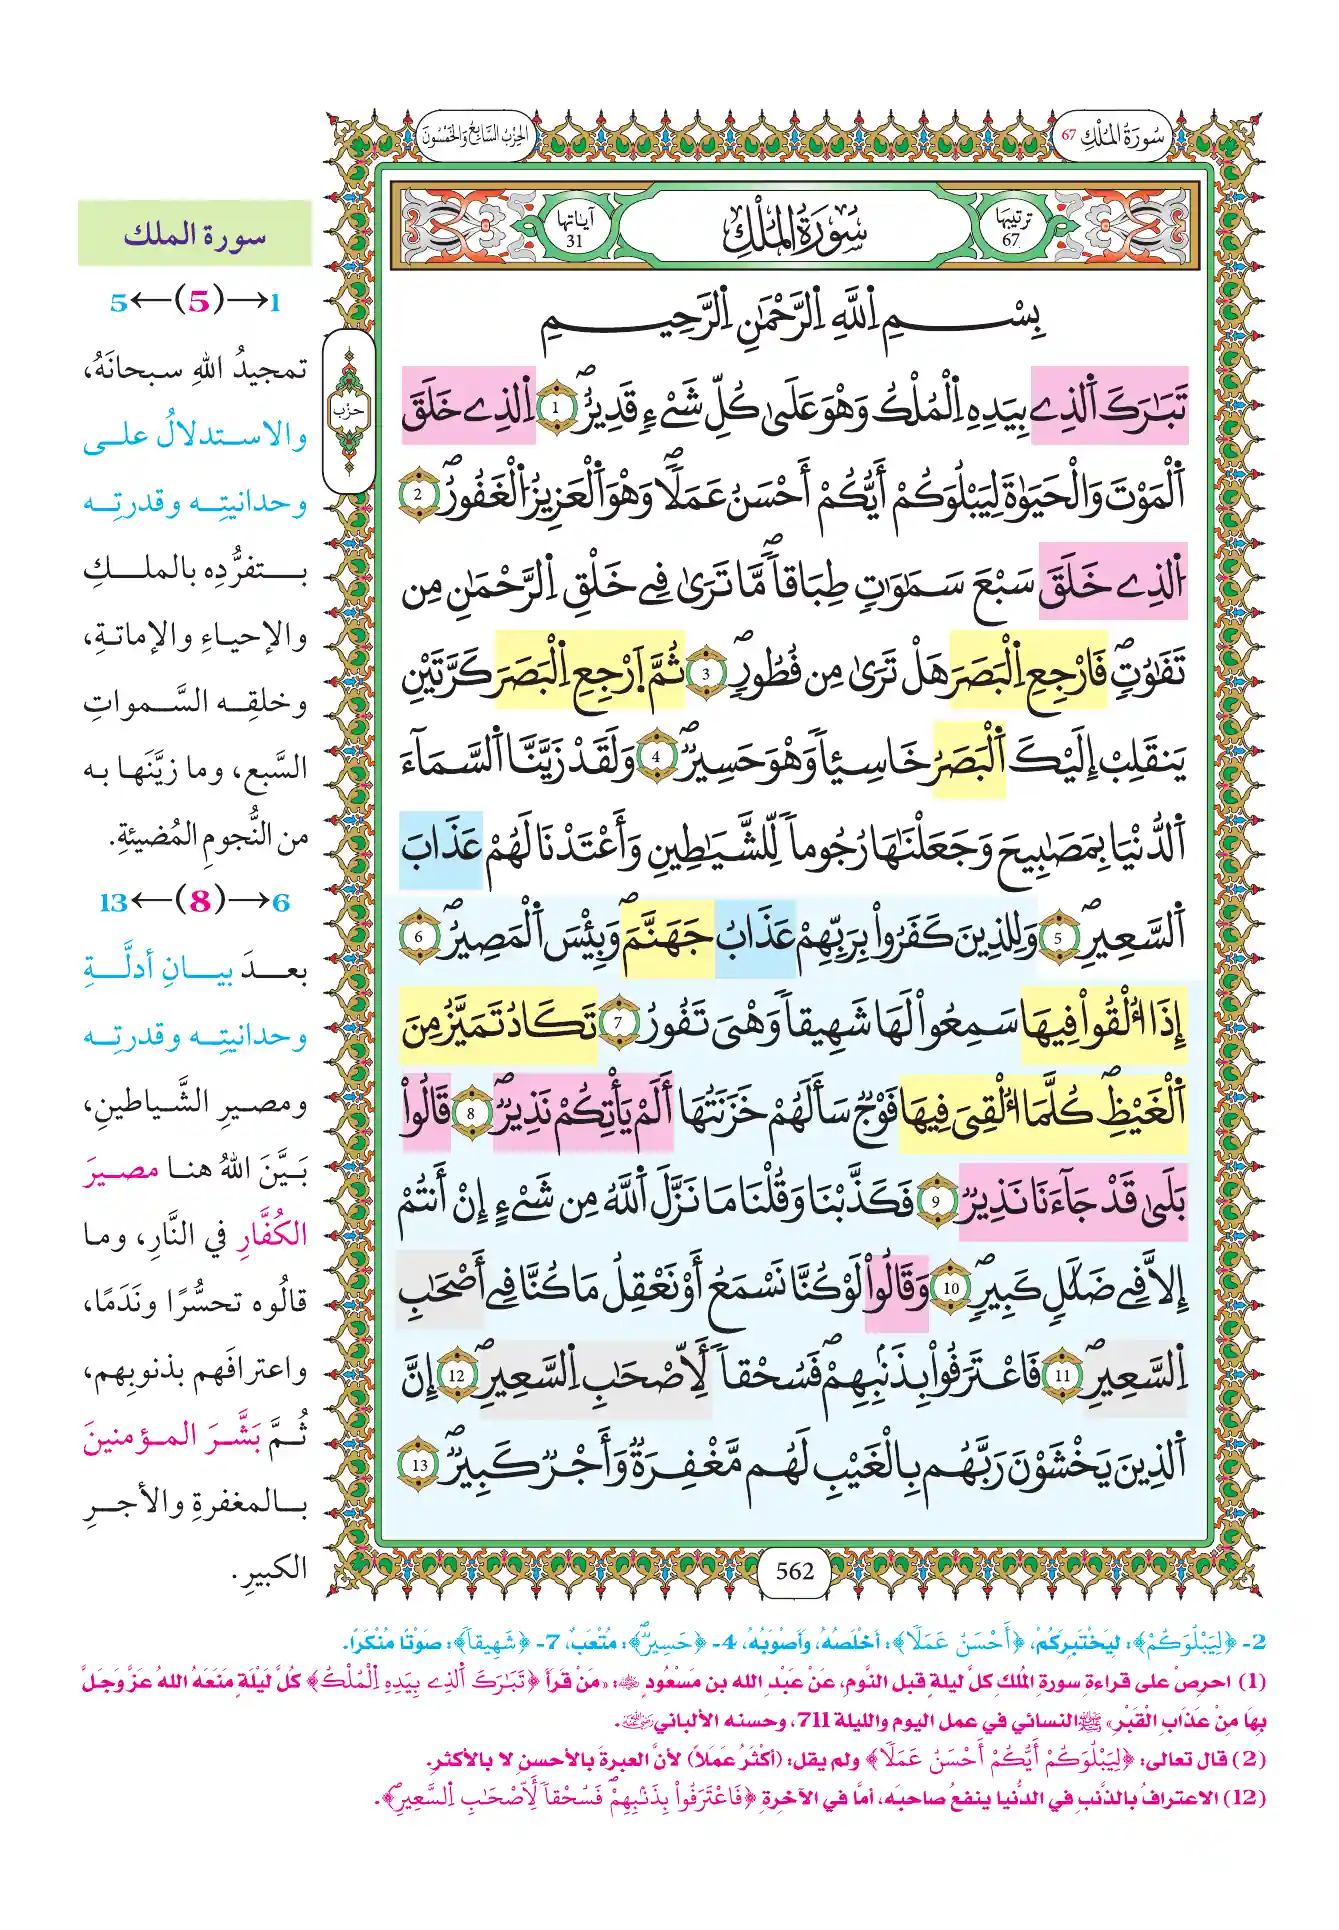 سُورَةُ المُلْكِ 67
الحِزْبُ السَّابِعُ وَالخَمْسُونَ
ترتيبها 67
سُورَةُ المُلْكِ
آياتها 31
بِسْمِ اِللَّهِ اِلرَّحْمَٰنِ اِلرَّحِيمِ
تَبَٰرَكَ اَلذِے بِيَدِهِ اِلْمُلْكُ وَهُوَ عَلَىٰ كُلِّ شَےْءٖ قَدِيرٌۖ 1 اِلذِے خَلَقَ
اَلْمَوْتَ وَالْحَيَوٰةَ لِيَبْلُوَكُمْ أَيُّكُمْ أَحْسَنُ عَمَلاٗۖ وَهُوَ اَلْعَزِيزُ اُلْغَفُورُۖ 2
اُلذِے خَلَقَ سَبْعَ سَمَٰوَٰتٖ طِبَاقاٗۖ مَّا تَرَىٰ فِے خَلْقِ اِلرَّحْمَٰنِ مِن
تَفَٰوُتٖۖ فَارْجِعِ اِلْبَصَرَ هَلْ تَرَىٰ مِن فُطُورٖۖ 3 ثُمَّ اَرْجِعِ اِلْبَصَرَ كَرَّتَيْنِ
يَنقَلِبْ إِلَيْكَ اَلْبَصَرُ خَاسِئاٗ وَهُوَ حَسِيرٌۖ 4 وَلَقَدْ زَيَّنَّا اَلسَّمَآءَ
اَلدُّنْيَا بِمَصَٰبِيحَ وَجَعَلْنَٰهَا رُجُوماٗ لِّلشَّيَٰطِينِ وَأَعْتَدْنَا لَهُمْ عَذَابَ
اَلسَّعِيرِۖ 5 وَلِلذِينَ كَفَرُواْ بِرَبِّهِمْ عَذَابُ جَهَنَّمَۖ وَبِئْسَ اَلْمَصِيرُۖ 6
إِذَا أُلْقُواْ فِيهَا سَمِعُواْ لَهَا شَهِيقاٗ وَهْىَ تَفُورُ 7 تَكَادُ تَمَيَّزُ مِنَ
اَلْغَيْظِۖ كُلَّمَا أُلْقِىَ فِيهَا فَوْجٞ سَأَلَهُمْ خَزَنَتُهَا أَلَمْ يَأْتِكُمْ نَذِيرٞۖ 8 قَالُواْ
بَلَىٰ قَدْ جَآءَنَا نَذِيرٞ 9 فَكَذَّبْنَا وَقُلْنَا مَا نَزَّلَ اَللَّهُ مِن شَےْءٍ إِنْ أَنتُمْ
إِلاَّ فِے ضَلَٰلٖ كَبِيرٖۖ 10 وَقَالُواْ لَوْ كُنَّا نَسْمَعُ أَوْ نَعْقِلُ مَا كُنَّا فِے أَصْحَٰبِ
اِلسَّعِيرِۖ 11 فَاعْتَرَفُواْ بِذَنۢبِهِمْۖ فَسُحْقاٗ لِّأَصْحَٰبِ اِلسَّعِيرِۖ 12 إِنَّ
اَلذِينَ يَخْشَوْنَ رَبَّهُم بِالْغَيْبِ لَهُم مَّغْفِرَةٞ وَأَجْرٞ كَبِيرٞۖ 13
حزب
562
سورة الملك
1→(5)←5
تمجيدُ اللهِ سبحانَهُ،
والاستدلالُ على
وحدانيتِه وقدرتِه
بتفرُّدِه بالملكِ
والإحياءِ والإماتةِ،
وخلقِه السَّمواتِ
السَّبع، وما زيَّنَها به
من النُّجومِ المُضيئةِ.
6→(8)←13
بعدَ بيانِ أدلَّةِ
وحدانيتِه وقدرتِه
ومصيرِ الشَّياطينِ،
بَيَّنَ اللهُ هنا مصيرَ
الكُفَّارِ في النَّارِ، وما
قالُوه تحسُّرًا ونَدَمًا،
واعترافَهم بذنوبِهم،
ثُمَّ بَشَّرَ المؤمنينَ
بالمغفرةِ والأجرِ
الكبيرِ.
2- ﴿لِيَبْلُوَكُمْ﴾: لِيَخْتَبِرَكُمْ، ﴿أَحْسَنُ عَمَلاٗ﴾: أخْلَصُهُ، وأصْوَبُهُ، 4- ﴿حَسِيرٌۖ﴾: مُتْعَبٌ، 7- ﴿شَهِيقاٗ﴾: صَوْتًا مُنْكَرًا.
(1) احرصْ على قراءةِ سورةِ المُلك كلَّ ليلةٍ قبل النَّوم، عَنْ عَبْدِ الله بن مَسْعُودٍ ﵁: «مَنْ قَرَأَ ﴿تَبَٰرَكَ اَلذِے بِيَدِهِ اِلْمُلْكُ﴾ كُلَّ لَيْلَةٍ مَنَعَهُ اللهُ عَزَّ وَجَلَّ
بِهَا مِنْ عَذَابِ القَبْرِ» ﷺ النسائي في عمل اليوم والليلة 711، وحسنه الألباني ﵁.
(2) قال تعالى: ﴿لِيَبْلُوَكُمْ أَيُّكُمْ أَحْسَنُ عَمَلاٗ﴾ ولم يقل: (أكْثَرُ عَمَلاً) لأنَّ العبرةَ بالأحسنِ لا بالأكثرِ.
(12) الاعترافُ بالذَّنبِ في الدُّنيا ينفعُ صاحبَه، أمَّا في الآخرةِ ﴿فَاعْتَرَفُواْ بِذَنۢبِهِمْۖ فَسُحْقاٗ لِّأَصْحَٰبِ اِلسَّعِيرِۖ﴾.